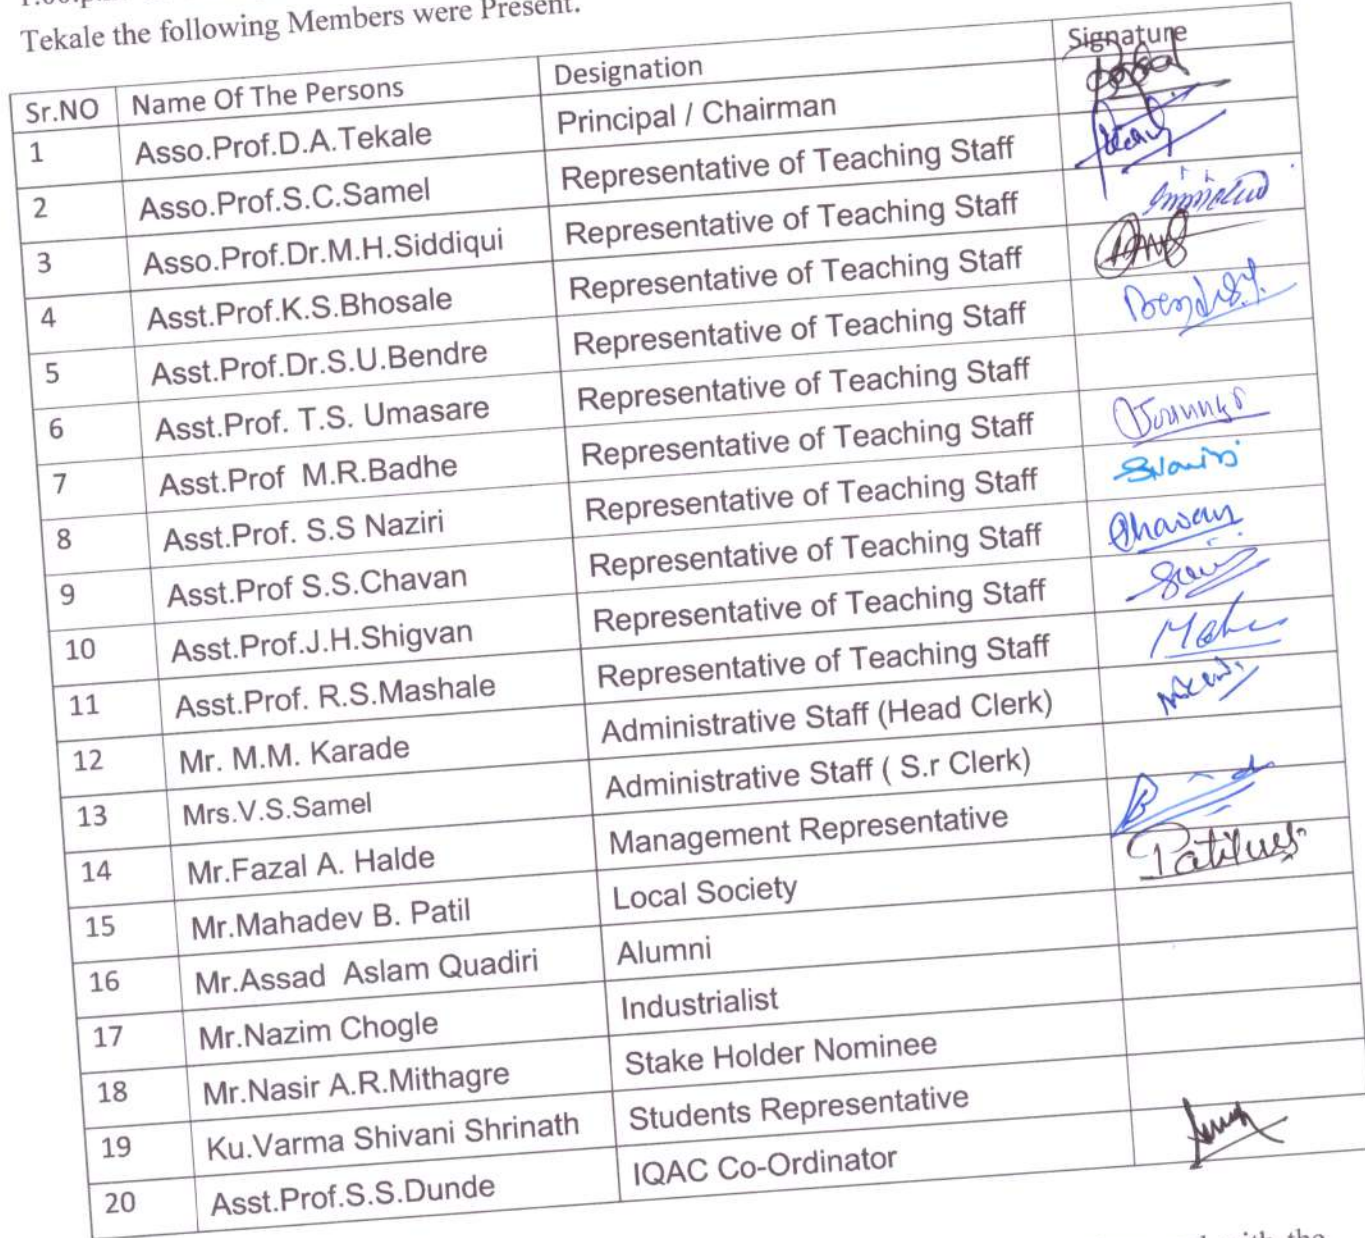 Tekale the following Members were Present.
Sr.NO Name Of The Persons Designation Signature
1 Asso.Prof.D.A.Tekale Principal / Chairman
2 Asso.Prof.S.C.Samel Representative of Teaching Staff
3 Asso.Prof.Dr.M.H.Siddiqui Representative of Teaching Staff
4 Asst.Prof.K.S.Bhosale Representative of Teaching Staff
5 Asst.Prof.Dr.S.U.Bendre Representative of Teaching Staff
6 Asst.Prof. T.S. Umasare Representative of Teaching Staff
7 Asst.Prof M.R.Badhe Representative of Teaching Staff
8 Asst.Prof. S.S Naziri Representative of Teaching Staff
9 Asst.Prof S.S.Chavan Representative of Teaching Staff Chavan
10 Asst.Prof.J.H.Shigvan Representative of Teaching Staff
11 Asst.Prof. R.S.Mashale Representative of Teaching Staff
12 Mr. M.M. Karade Administrative Staff (Head Clerk)
13 Mrs.V.S.Samel Administrative Staff ( S.r Clerk)
14 Mr.Fazal A. Halde Management Representative
15 Mr.Mahadev B. Patil Local Society
16 Mr.Assad Aslam Quadiri Alumni
17 Mr.Nazim Chogle Industrialist
18 Mr.Nasir A.R.Mithagre Stake Holder Nominee
19 Ku.Varma Shivani Shrinath Students Representative
20 Asst.Prof.S.S.Dunde IQAC Co-Ordinator